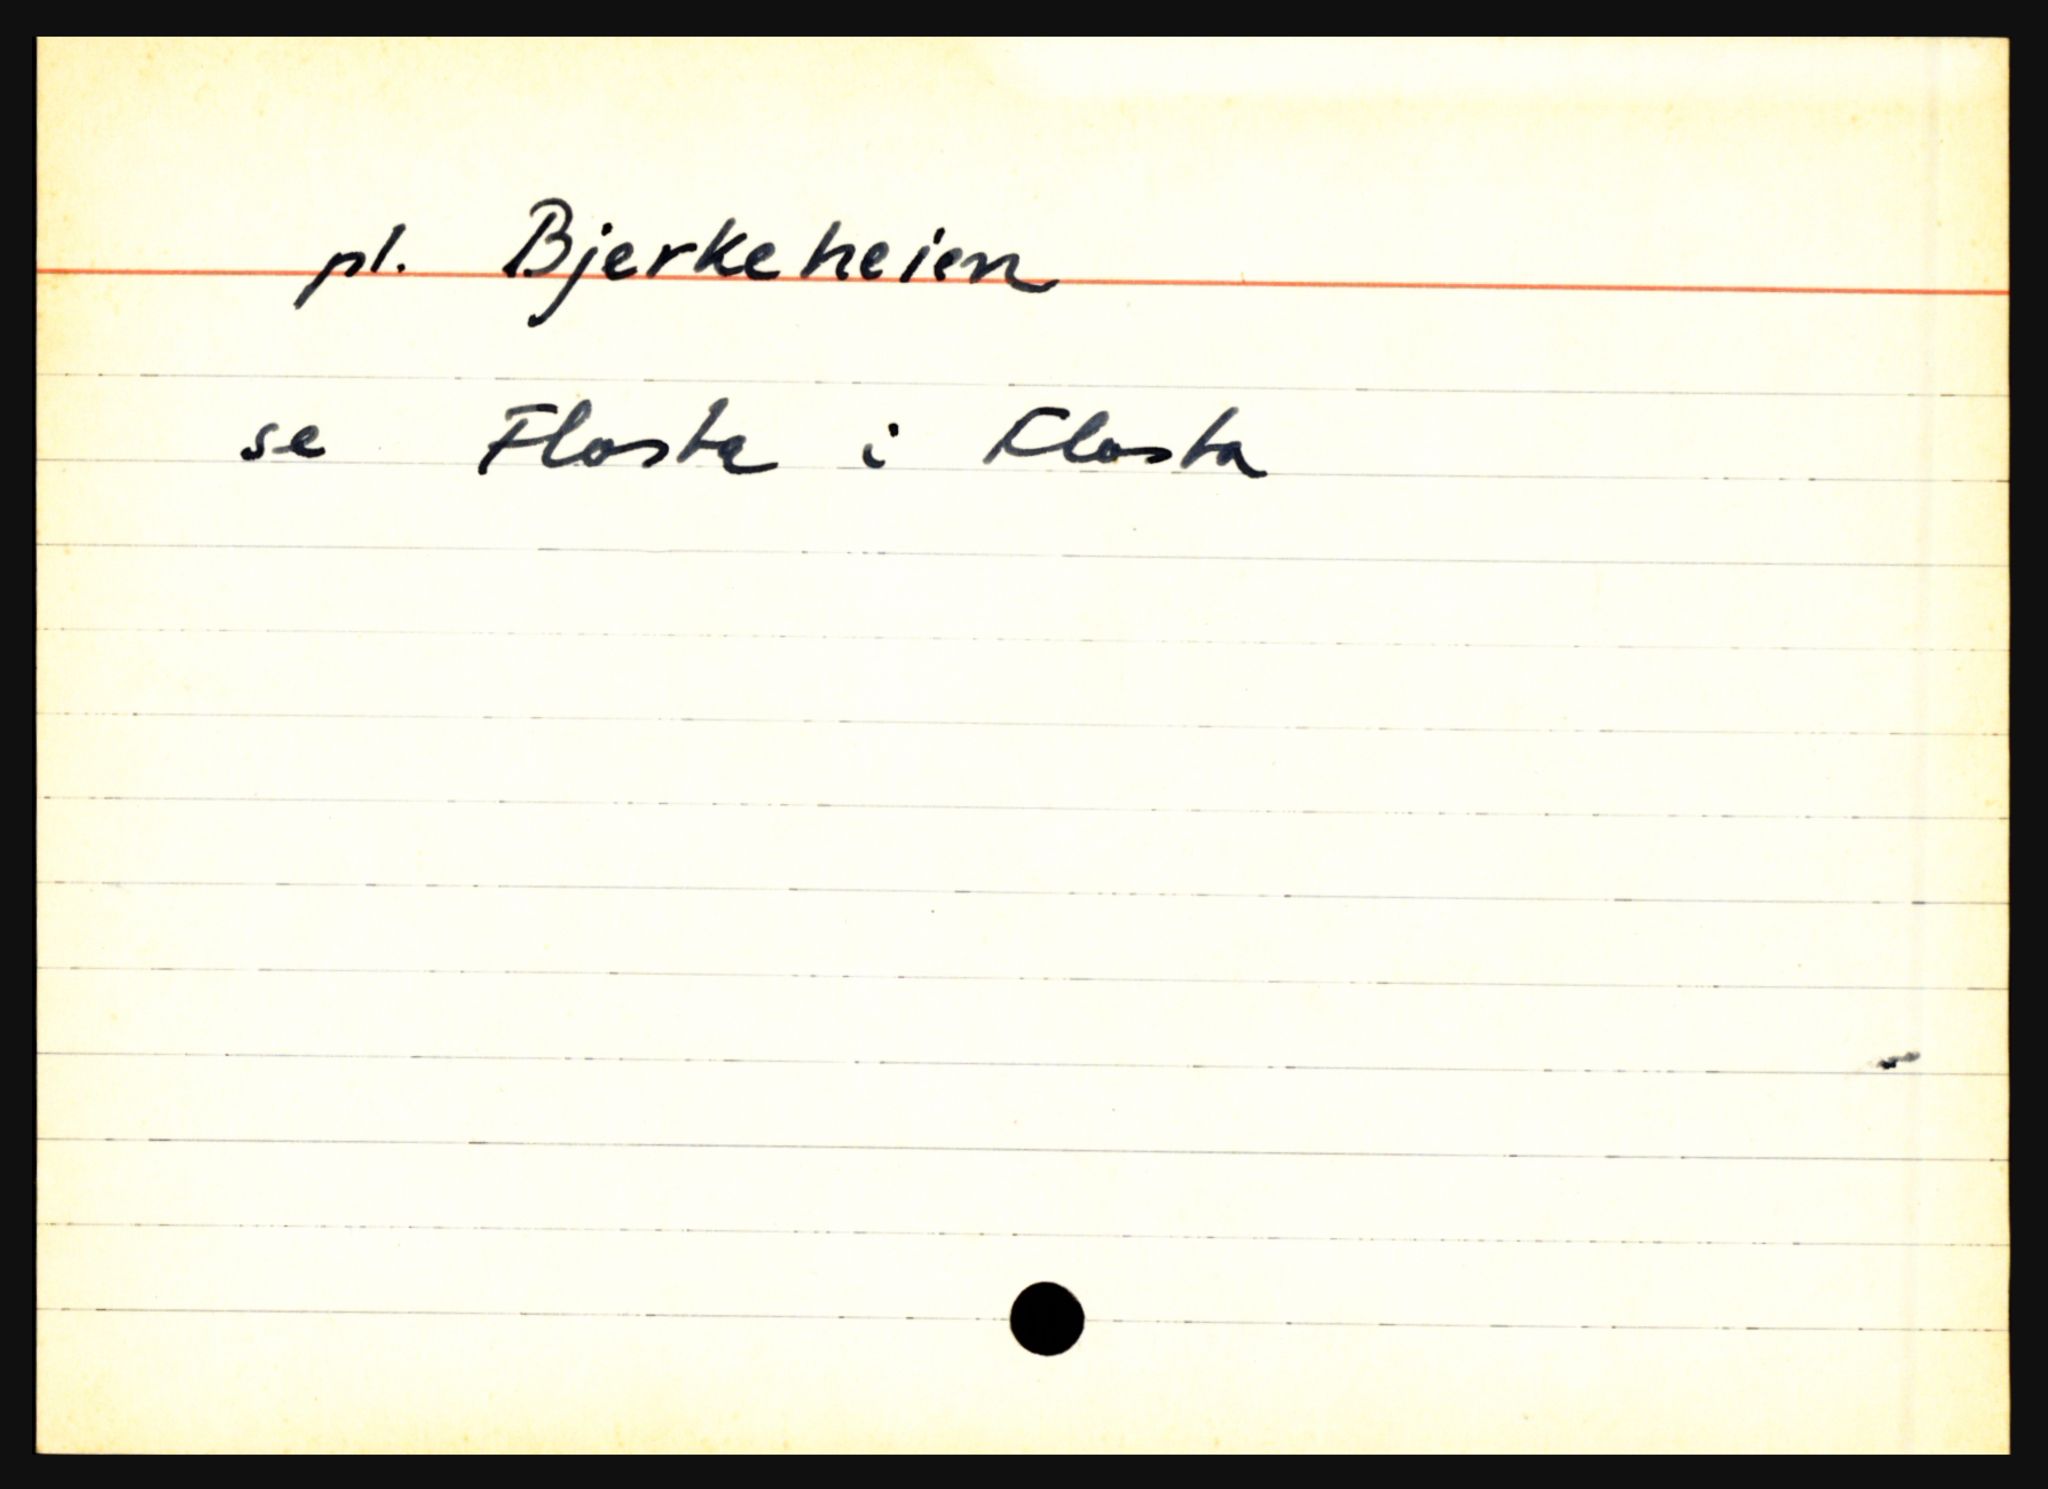 pl. Bjerkeheien
se Flosta i Flosta